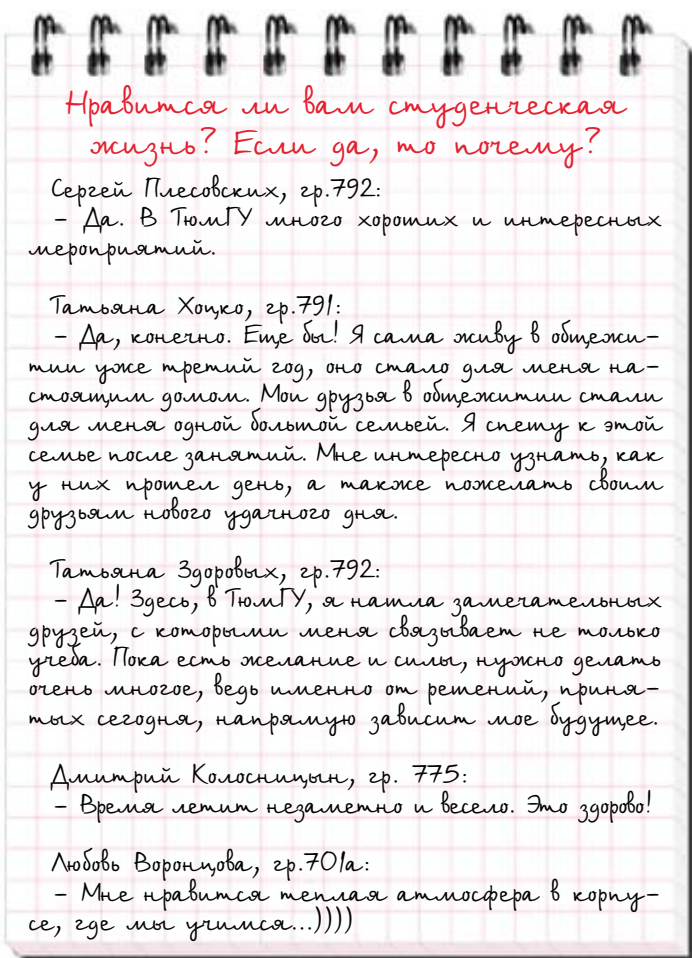 Нравится ли вам студенческая
жизнь? Если да, то почему?
Сергей Плесовских, гр.792:
– Да. В ТюмГУ много хороших и интересных
мероприятий.
Татьяна Хоцко, гр.791:
– Да, конечно. Еще бы! Я сама живу в общежи-
тии уже третий год, оно стало для меня на-
стоящим домом. Мои друзья в общежитии стали
для меня одной большой семьей. Я спешу к этой
семье после занятий. Мне интересно узнать, как
у них прошел день, а также пожелать своим
друзьям нового удачного дня.
Татьяна Здоровых, гр.792:
– Да! Здесь, в ТюмГУ, я нашла замечательных
друзей, с которыми меня связывает не только
учеба. Пока есть желание и силы, нужно делать
очень многое, ведь именно от решений, приня-
тых сегодня, напрямую зависит мое будущее.
Дмитрий Колосницын, гр. 775:
– Время летит незаметно и весело. Это здорово!
Любовь Воронцова, гр.701а:
– Мне нравится теплая атмосфера в корпу-
се, где мы учимся...))))